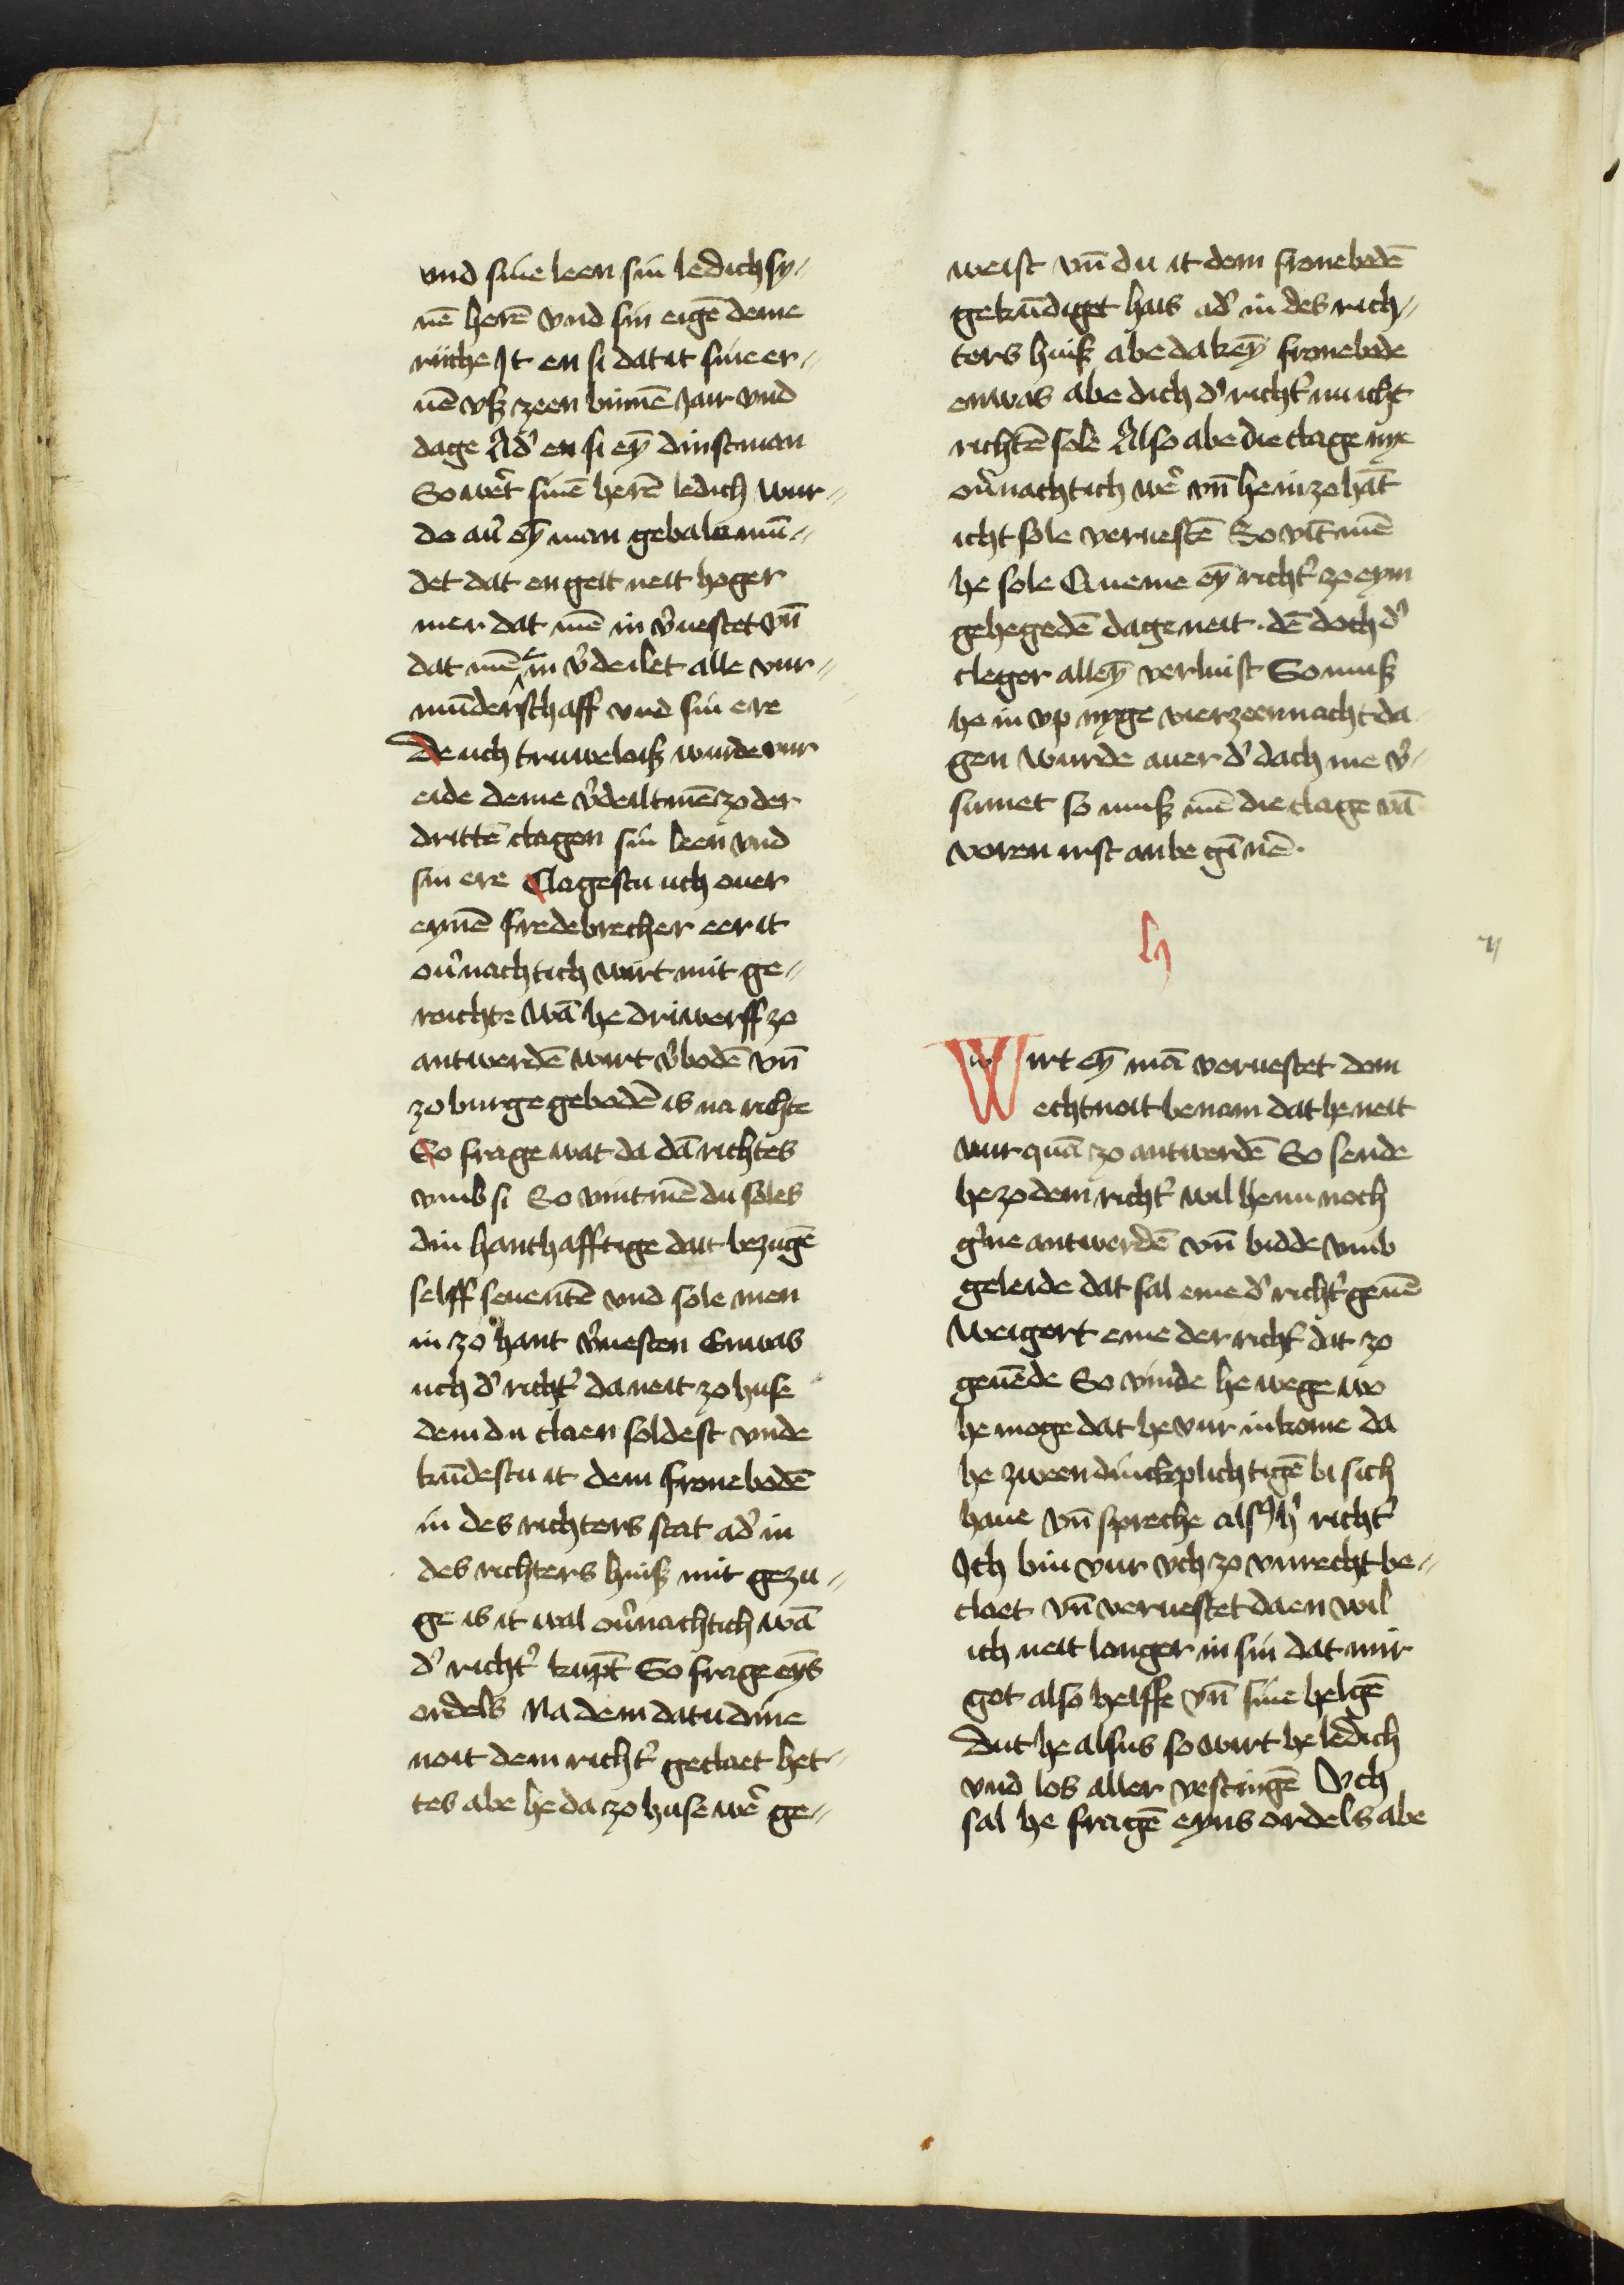 vnd sine leen sin ledich sy-
nē herē vnd sin eigē deme
riiche It en si dat it sine er-
uē vsz zeen binnē jair vnd
dage Ad' en si ey̅ dinstman
So wer't sinē herē ledich wur-
de au' ey̅ man gebalemū-
det dat en geit neit hoger
mer dat mē in v'uestet vn̄
dat mē in v'deilet alle vur-
mūderschaff vnd sin ere
De uch truweloisz wurde vur
eide deme v'deilt mē zo der
drittē clagen sin leen vnd
sin ere Clagestu uch ouer
eymē fredebrecher eer it
ou'nachtich wirt mit ge-
ruichte wā he driwerff zo
antwerdē wirt v'bodē vn̄
zo burge gebodē is na richte
So frage wat da dā richtes
vmb si So vint mē du soles
din hanthafftige dait bezugē
selff seuentē vnd sole men
in zo hant v'uesten Enwas
uch d' richt' da neit zo huse
dem du claen soldest vnde
kūdestu it dem fronebodē
in des richters stat ad' in
des richters huisz mit gezu-
ge is it wal ou'nachtich wā
d' richt' kupt So frage eyns
ordels Na dem dat u dine
noit dem richt' geclaet het-
tes abe he da zo huse wer' ge-
weist vn̄ du it dem fronebodē
gekūdiget hais ad' in des rich-
ters huisz abe da key̅ fronebode
enwas abe dich d' richt' nu icht
richtē sole Also abe die clage nye
ou'nachtich wer' vn̄ he in zo hāt
icht sole veruestē So vīt mē
he sole Queme ey̅ richt' zo eym
gehegedē dage neit · dē doch d'
cleger alley̅ verluist So musz
he in vp nyge vierzeennacht da
gen wurde auer d' dach me v'-
sumet so musz mē die clage vā
voren irst anbegīnē ·
Wirt ey̅ mā veruestet dem
echtnoit benam dat he neit
vur quā zo antwerdē So sende
he zo dem richt' wil he nu noch
g'ne antwerdē vn̄ bidde vmb
geleide dat sal eme d' richt' geuē
Weigert eme der richt' dat zo
geuēde So vinde he wege wo
he moge dat he vur in kome da
he zween dinckplichtigē bi sich
haue vn̄ spreche alsus h' richt'
Ich bin vur vch zo vnrecht be-
claet vn̄ veruestet daen wil
ich neit langer in sin dat mir
got also helffe vn̄ sine helgē
Dut he alsus so wirt he ledich
vnd los aller vestingē Vch
sal he fragē eyns ordels abe